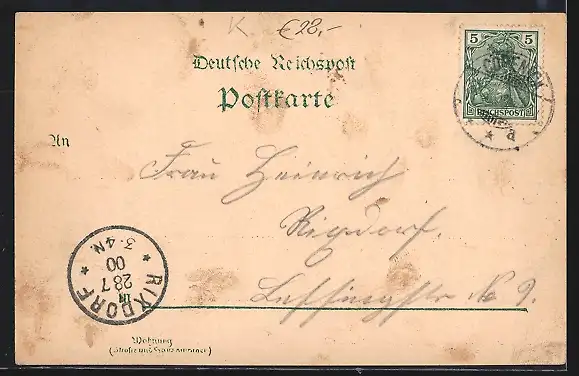 K. €28,-
5 5
REICHSPOST
CÖPENICK 1
* * d
Deutsche Reichspost
Postkarte
An
Frau Heinrich
Rixdorf.
Lessingstr No 9.
RIXDORF
* *
3-4N.
28 7
00
Wohnung
(Straße und Hausnummer)